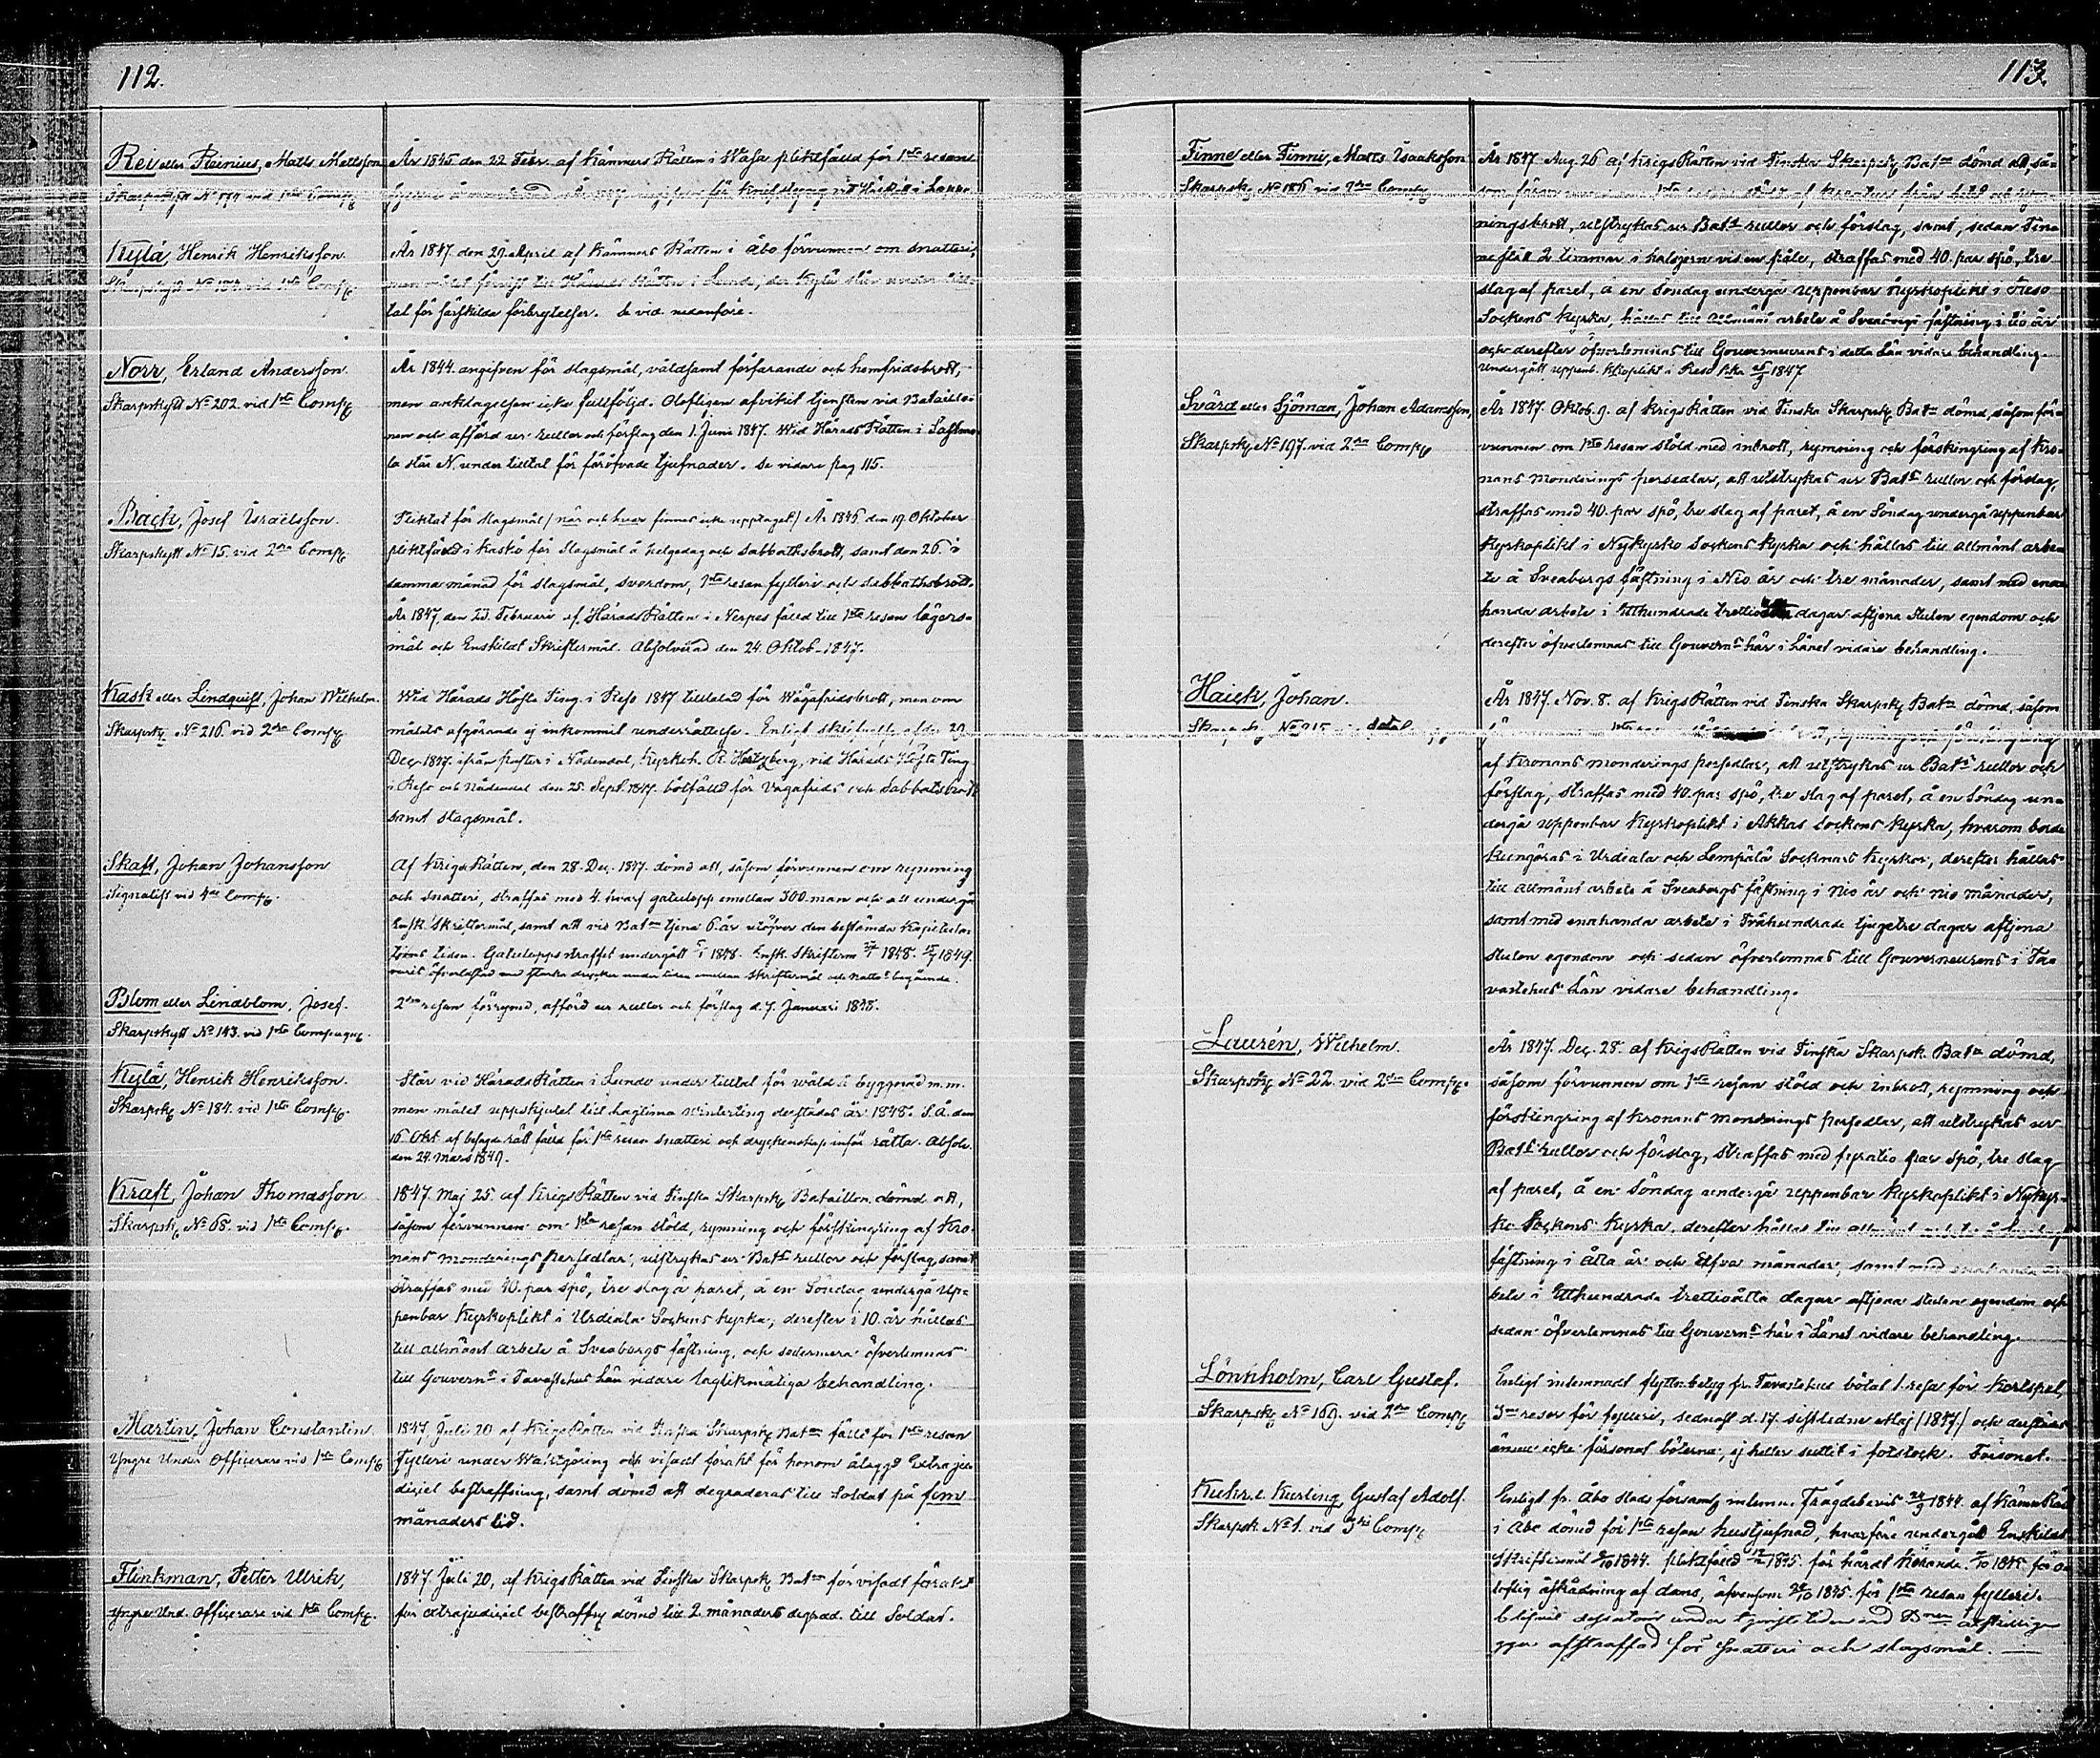 112.
Rei eller Reinius, Matts Mattsson
Skarpskytt No 179 vid 1sta Compg
År 1845 den 22 Febr. af Kämners Rätten i Wasa pliktfälld för 1sta resans
fylleri
Kylä, Henrik Henriksson.
Skarpskytt No 184 vid 1sta Compg
År 1847 den 29 April af Kämners Rätten i Åbo förvunnen om snatteri,
men målet förvist till Härads Rätten i Lundo, der Kylä står under till-
tal för särskilda förbrytelser. Se vid. nedanföre.
Norr, Erland Andersson.
Skarpskytt No 202 vid 1sta Compg
År 1844 angifven för slagsmål, våldsamt förfarande och hemfridsbrott,
men anklagelsen icke fullföljd. Olofligen afvikit tjensten vid Bataillo-
nen och afförd ur rullor och förslag den 1. Junii 1847. Wid Härads Rätten i Sastmo-
la står N. under tilltal för föröfvade tjufnader. Se vidare pag 115.
Bach, Josef Israelsson.
Skarpskytt No 15. vid 2dra Compg
Pliktat för slagsmål (när och hvar finnes icke upptaget) År 1845 den 19. Oktober
pliktfälld i Kaskö för slagsmål å helgedag och sabbathsbrott, samt den 26. i
samma månad för slagsmål, svordom, 1sta resan fylleri och sabbathsbrott.
År 1847 den 23. Februari af HäradsRätten i Nerpes fälld till 1sta resan lägers-
mål och Enskildt Skriftermål. Absolverad den 24. Oktob. 1847.
Kask eller Lindquist, Johan Wilhelm.
Skarpsk. No 216. vid 2dra Compg
Wid Härads Höste Ting i Reso 1847 tilltalad för Wägafridsbrott, men om
målets afgörande ej inkommit underrättelse. Enligt skrifvelse af den 20
Dec. 1847 ifrån pastor i Nådendal, Kyrkoh. R. Hertzberg, vid Härads Höste Ting
i Reso och Nådendal den 25. Sept. 1847. botfälld för vägafrids och sabbatsbrott
samt slagsmål.
Skaft, Johan Johansson
Signalist vid 4de Compg.
Af KrigsRätten, den 28. Dec. 1847. dömd att, såsom förvunnen om rymning
och snatteri, straffas med 4. hvarf gatulopp emellan 300 man och att undergå
Ensk. Skriftermål, samt att vid Batn tjena 6. år utöfver den bestämda Kapitula-
tions tiden. Gatuloppsstraffet undergått 5/1 1848. Ensk. Skrifterm 1848. 1849.
Blom eller Lindblom, Josef.
Skarpskytt No 143. vid 1sta Compagnie.
2dra resan förrymd, afförd ur rullor och förslag d. 7. Januari 1848.
Kylä, Henrik Henriksson.
Skarpsk No 184. vid 1sta Compg.
Står vid Härads Rätten i Lundo under tilltal för våld å byggnad m.m.
men målet uppskjutet till lagtima vinterting derstädes år 1848. S.Å. den
16 Okt. af besagde rätt fälld för 1sta resan snatteri och dryckenskap inför rätta. Absolv.
den 24. Mars 1849.
Kraft, Johan Thomasson.
Skarpsk. No 68. vid 1sta Compg.
1847. Maj 25 af KrigsRätten vid Finska Skarpsk. Bataillon dömd att,
såsom förvunnen om 1sta resan stöld, rymning och förskingring af Kro-
nans Monderings persedlar, utstrykas ur Bats rullor och förslag, samt
straffas med 40. par spö, tre slag å paret, å en Söndag undergå Up-
penbar Kyrkoplikt i Urdiala Sockens kyrka, derefter i 10. år hållas
till allmänt arbete å Sveaborgs fästning, och sedermera öfverlemnas
till Gouverns i Tavastehus Län vidare laglikmätiga behandling.
Martin, Johan Constantin
Yngre Under Officerare vid 1sta Compg
1847. Juli 20 af KrigsRätten vid Finska Skarpsk. Batn fälld för 1sta resan
Fylleri under Waktgöring och visadt förakt för honom ålagd Extraju-
diciel bestraffning, samt dömd att degraderas till Soldat på fem
månaders tid.
Flinkman, Petter Ulrik,
Yngre Und. Officerare vid 1sta Compg.
1847. Juli 20, af KrigsRätten vid Finska Skarpsk Batn för visadt förakt
för extrajudiciel bestraffg dömd till 2. månaders degrad. till Soldat.
113.
Finne eller Finni, Matts Isaaksson
Skarpsk. No 186 vid 2dra Compg
År 1847 Aug. 26 af KrigsRätten vid Finska Skarpsk. Batn dömd att, så-
som förvunnen om 1sta resan stöld af kreatur från bete och rym-
ningsbrott, utstrykas ur Bats rullor och förslag, samt, sedan Fin-
ne stått 2 timmar i halsjern vid en påle, straffas med 40. par spö, tre
slag af paret, å en Söndag undergå Uppenbar Kyrkoplikt i Reso
Sockens Kyrka, hållas till Allmänt arbete å Sveaborgs fästning i tio år
och derefter öfverlemnas till Gouverneurens i detta Län vidare behandling.
Undergått uppenb. Kkoplikt i Reso Kka 1847
Svärd eller Sjöman, Johan Adamsson,
Skarpsk. No 197. vid 2dra Compg
År 1847. Oktob. 9. af KrigsRätten vid Finska Skarpsk. Batn dömd, såsom för-
vunnen om 1sta resan stöld med inbrott, rymning och förskingring af Kro-
nans Monderings persedlar, att utstrykas ur Bats rullor och förslag,
straffas med 40. par spö, tre slag af paret, å en Söndag undergå uppenbar
Kyrkoplikt i Nykyrko Sockens kyrka och hållas till allmänt arbe-
te å Sveaborgs fästning i Nio år och tre månader, samt med ena-
handa arbete i Etthundrade trettio dagar aftjena stulen egendom och
derefter öfverlemnas till Gouverns här i Länet vidare behandling.
Haick, Johan.
Skarpsk No 215
År 1847. Nov. 8. af KrigsRätten vid Finska Skarpsk Batn dömd, såsom
rymning och förskingring
af Kronans Monderings persedlar, att utstrykas ur Bats rullor och
förslag, straffas med 40. par spö, tre slag af paret, å en Söndag un-
dergå uppenbar Kyrkoplikt i Akkas Sockens Kyrka, hvarom borde
kungöras i Urdiala och Lempälä Socknars Kyrkor, derefter hållas
till allmänt arbete å Sveaborgs fästning i nio år och nio månader,
samt med enahanda arbete i Tvåhundrade tjugetre dagar aftjena
stulen egendom och sedan öfverlemnas till Gouverneurens i Ta-
vastehus Län vidare behandling.
Laurén, Wilhelm.
Skarpsk. No 22. vid 2dra Compg.
År 1847. Dec. 28. af KrigsRätten vid Finska Skarpsk. Batn dömd,
såsom förvunnen om 1sta resan stöld och inbrott, rymning och
förskingring af Kronans Monderings persedlar, att utstrykas ur
Bats rullor och förslag, straffas med fyratio par spö, tre slag
af paret, å en Söndag undergå uppenbar Kyrkoplikt i Nykyr-
ko Sockens Kyrka, derefter hållas till allmänt
fästning i Åtta år och Elfva månader, samt med enahanda ar-
bete i Etthundrade trettioåtta dagar aftjena stulen egendom och
sedan öfverlemnas till Gouverns här i Länet vidare behandling.
Lönnholm, Carl Gustaf.
Skarpsk. No 169. vid 2dra Compg
Enligt inlemnadt flyttn.betyg fr. Tavastehus bötat 1. resa för Kortspel,
3ne resor för fylleri, sednast d. 17. sistledne Maj (1847) och derstädes
ännu icke försonat böterna, ej heller suttit i fotstock. Försonat.
Kuhr. l. Kurting, Gustaf Adolf.
Skarpsk. No 1. vid 3dje Compg
Enligt fr. Åbo stads församl. inlemn. Frägdebevis 1844. af KämnRätt
i Åbo dömd för 1sta resan hustjufnad, hvarföre undergått Enskildt
Skriftermål 1844. pliktfälld 1845. för hårdt Körande. 1845. för o-
loflig åskådning af dans, äfvensom 1845. för 1sta resan fylleri.
afstraffad för snatteri och slagsmål.